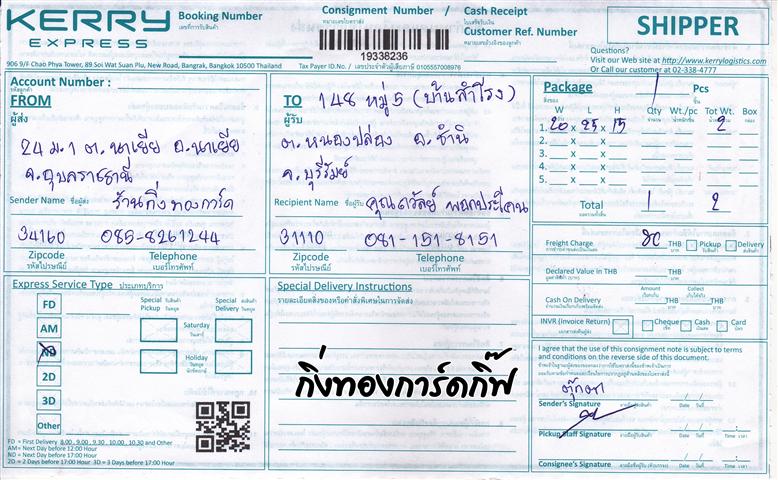 KERRY
EXPRESS
Booking Number
เลขที่การรับสินค้า
Consignment Number / Cash Receipt
หมายเลขใบตราส่ง
ใบเสร็จรับเงิน
Customer Ref. Number
19338236
SHIPPER
Questions?
Visit our Web site at http://www.kerrylogistics.com
Or Call our customer at 02-338-4777
906 9/F Chao Phya Tower, 89 Soi Wat Suan Plu, New Road, Bangrak, Bangkok 10500 Thailand
Tax Payer ID.No. / เลขประจำตัวผู้เสียภาษี 0105557008976
Account Number :
FROM
ผู้ส่ง
24 ม.1 ต.นาเยีย อ.นาเยีย
จ.อุบลราชธานี
Sender Name ชื่อผู้ส่ง ร้านกิ่งทองการ์ด
34160 085-8261244
Zipcode Telephone
รหัสไปรษณีย์ เบอร์โทรศัพท์
TO 148 หมู่ 5 (บ้านสำโรง)
ผู้รับ
ต.หนองปล่อง อ.ชำนิ
จ.บุรีรัมย์
Recipient Name ชื่อผู้รับ
31110 081-151-8151
Zipcode Telephone
รหัสไปรษณีย์ เบอร์โทรศัพท์
Package 1 Pcs
สิ่งของ ชิ้น
W L H Qty Wt./pc Tot Wt. Box
1. 20 x 25 x 15 2
2. x x
3. x x
4. x x
5. x x
Total 1 2
Freight Charge 80 THB Pickup Delivery
Declared Value in THB THB
Amount Collect
Cash On Delivery THB
INVR (Invoice Return) Cheque Cash Card
Express Service Type ประเภทบริการ
FD
AM
ND
2D
3D
Other
Special Pickup
Special Delivery
Saturday
วันเสาร์
Holiday
วันหยุด
FD = First Delivery 8.00 , 9.00 , 9.30 , 10.00 , 10.30 and Other
AM= Next Day before 12:00 Hour
ND = Next Day before 17:00 Hour
2D = 2 Days before 17:00 Hour 3D = 3 Days before 17:00 Hour
Special Delivery Instructions
รายละเอียดสิ่งของหรือคำสั่งพิเศษในการจัดส่ง
กิ่งทองการ์ดกิ๊ฟ
I agree that the use of this consignment note is subject to
terms and conditions on the reverse side of this document.
ตุ๊กตา
Sender's Signature ลายมือชื่อผู้ส่ง Date / วันที่
Pickup Staff Signature Date / วันที่ Time เวลา
Consignee's Signature Date / วันที่ Time เวลา